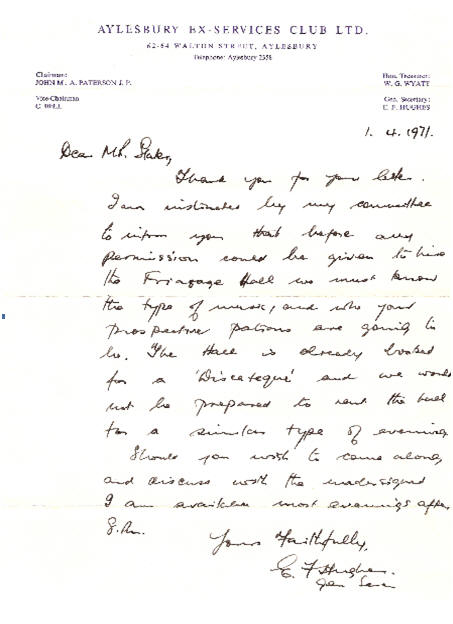 AYLESBURY EX-SERVICES CLUB LTD.
62-64 WALTON STREET, AYLESBURY
Telephone: Aylesbury 2358
Chairman:
JOHN M. A. PATERSON J.P.
Hon. Treasurer:
W. G. WYATT
Vice-Chairman
C. BELL
Gen. Secretary:
E. F. HUGHES
1. 4. 1971.
Dear Mr.
Thank you for your letter.
I am instructed by my committee
to inform you that before any
permission could be given to hire
the Friarage Hall we must know
the type of music, and who your
prospective patrons are going to
be. The Hall is already booked
for a 'Discateque' and we would
not be prepared to rent the hall
for a similar type of evening.
Should you wish to come along,
and discuss with the undersigned
I am available most evenings after
8.
Yours Faithfully,
E. F Hughes.
Gen